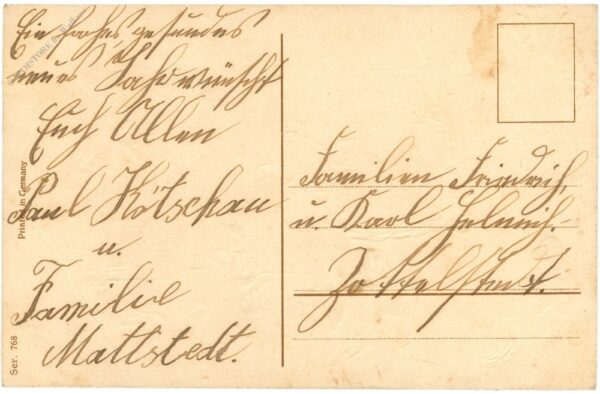 Ein frohes gesundes
neues Jahr wünscht
Euch Allen
Paul Kötschau
u.
Familie
Mattstedt.
Familien Friedrich
u. Karl Helmrich.
Zottelstedt.
Printed in Germany
Ser. 768